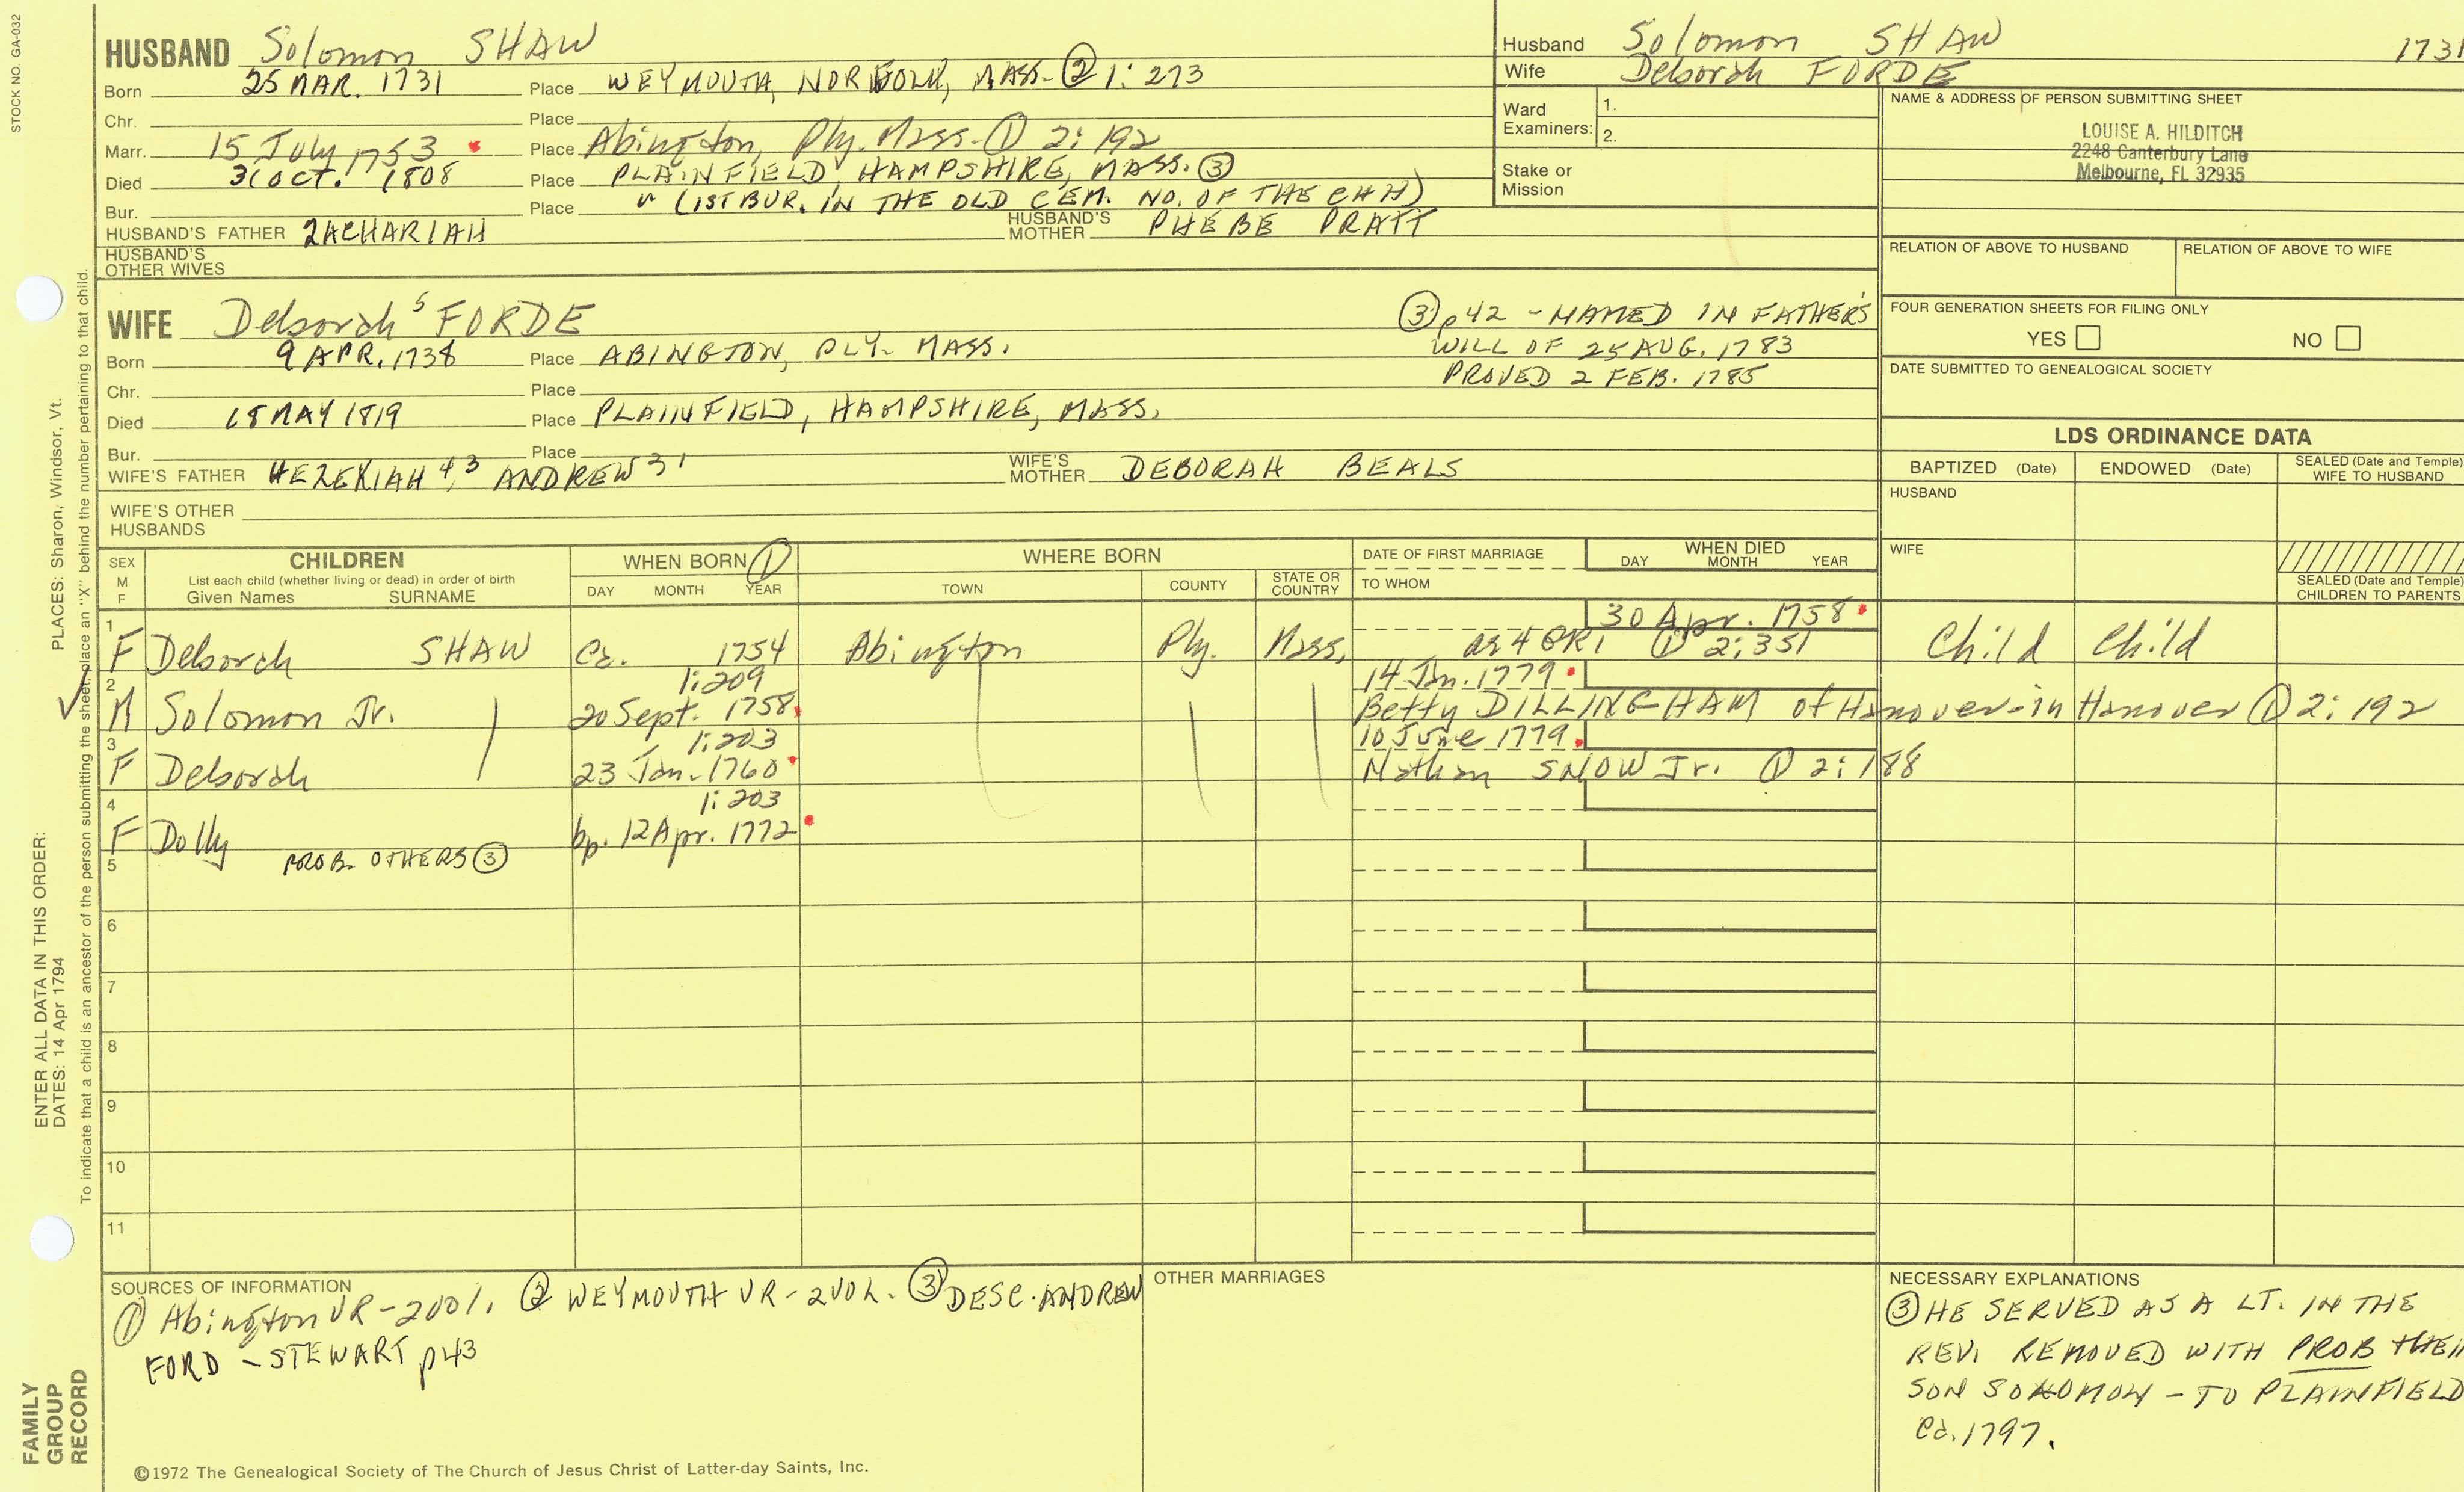 STOCK NO. GA-032
HUSBAND Solomon SHAW
Born 25 MAR. 1731 Place WEYMOUTH, NORFOLK, MASS. ② 1: 273
Chr. Place
Marr. 15 July 1753 Place Abington, Ply. Mass. ① 2: 192
Died 31 OCT. 1808 Place PLAINFIELD HAMPSHIRE, MASS. ③
Bur. Place " (1ST BUR. IN THE OLD CEM. NO. OF THE CH H)
HUSBAND'S FATHER ZACHARIAH HUSBAND'S MOTHER PHEBE PRATT
HUSBAND'S OTHER WIVES
WIFE Deborah 5 FORDE
Born 9 APR. 1738 Place ABINGTON, PLY. MASS.
Chr. Place
Died 18 MAY 1819 Place PLAINFIELD, HAMPSHIRE, MASS.
Bur. Place
WIFE'S FATHER HEZEKIAH 4,3 ANDREW 3 1 WIFE'S MOTHER DEBORAH BEALS
WIFE'S OTHER HUSBANDS
③ p 42 - NAMED IN FATHER'S
WILL OF 25 AUG. 1783
PROVED 2 FEB. 1785
Husband Solomon SHAW 1731
Wife Deborah FORDE
Ward Examiners: 1.
2.
Stake or Mission
NAME & ADDRESS OF PERSON SUBMITTING SHEET
LOUISE A. HILDITCH
2248 Canterbury Lane
Melbourne, FL 32935
RELATION OF ABOVE TO HUSBAND RELATION OF ABOVE TO WIFE
FOUR GENERATION SHEETS FOR FILING ONLY
YES NO
DATE SUBMITTED TO GENEALOGICAL SOCIETY
LDS ORDINANCE DATA
BAPTIZED (Date) ENDOWED (Date) SEALED (Date and Temple) WIFE TO HUSBAND
HUSBAND
WIFE
SEALED (Date and Temple) CHILDREN TO PARENTS
SEX M F CHILDREN WHEN BORN ① WHERE BORN DATE OF FIRST MARRIAGE WHEN DIED
List each child (whether living or dead) in order of birth
Given Names SURNAME DAY MONTH YEAR TOWN COUNTY STATE OR COUNTRY TO WHOM DAY MONTH YEAR
1 30 Apr. 1758
F Deborah SHAW Ca. 1754 Abington Ply. Mass. ae 4 CR1 ① 2: 351 Child Child
2 1: 209 14 Jan. 1779
M Solomon Jr. 20 Sept. 1758 Betty DILLINGHAM of Hanover - in Hanover ① 2: 192
3 1: 203 10 June 1779
F Deborah 23 Jan. 1760 Nathan SNOW Jr. ① 2: 188
4 1: 203
F Dolly bp. 12 Apr. 1772
5 PROB. OTHERS ③
6
7
8
9
10
11
SOURCES OF INFORMATION
① Abington VR - 2 vol. ② WEYMOUTH VR - 2 VOL. ③ DESC. ANDREW
FORD - STEWART p 43
OTHER MARRIAGES
NECESSARY EXPLANATIONS
③ HE SERVED AS A LT. IN THE
REV. REMOVED WITH PROB THEIR
SON SOLOMON - TO PLAINFIELD
Ca. 1797.
©1972 The Genealogical Society of The Church of Jesus Christ of Latter-day Saints, Inc.
FAMILY GROUP RECORD
ENTER ALL DATA IN THIS ORDER:
DATES: 14 Apr 1794 PLACES: Sharon, Windsor, Vt.
To indicate that a child is an ancestor of the person submitting the sheet, place an "X" behind the number pertaining to that child.